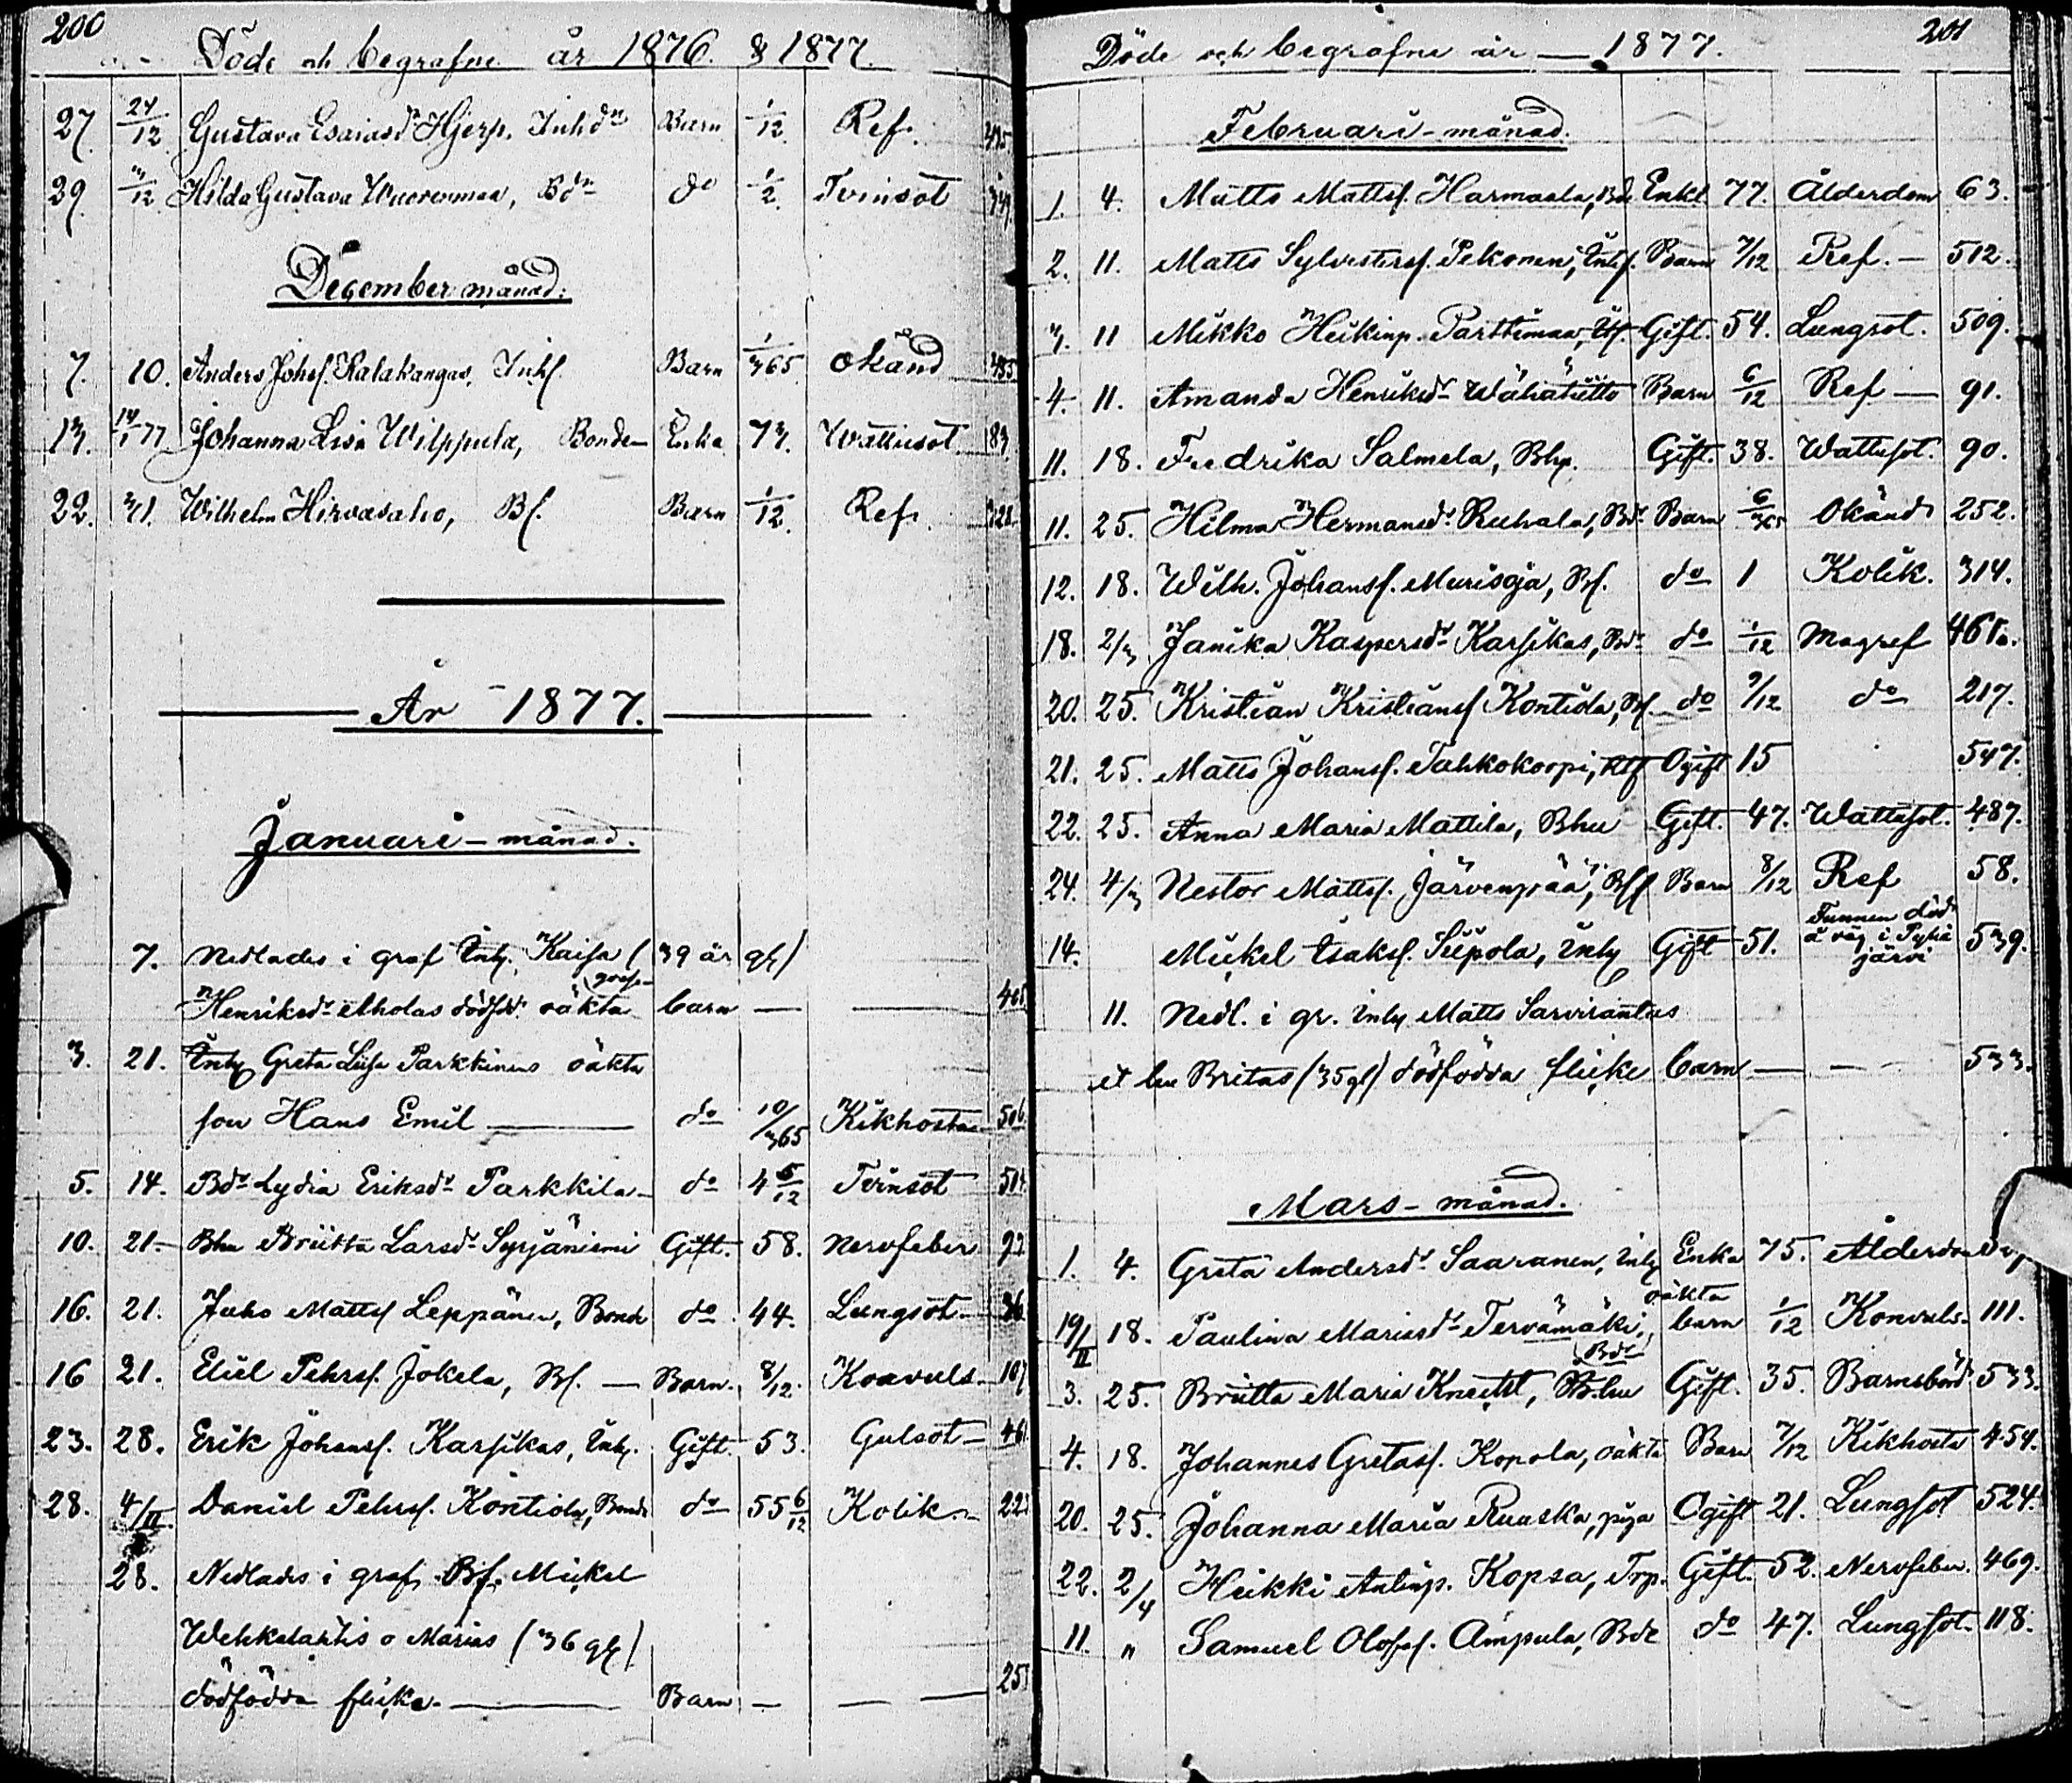 200
Döde och begrafne år 1876. & 1877.
27. 24/12 Gustava Esaiasdr Hjerp. Inhdr Barn 1/12. Ref.
29. 3/12 Hilda Gustava Bdr do 1/2. Tvinsot
December månad:
7. 10. Anders Johsf. Kalakangas, Inhs. Barn 1/365 okänd
13. 14/1 77 Johanna Lisa Wilppula, Bonde Enka 73. Wattusot 183
22. 3/1. Wilhelm Hirvasaho, Bs. Barn 1/12. Ref.
År 1877.
Januari-månad.
7. Nedlades i graf Inh. Kaisa (39 år gl)
Henriksdr Aholas dödf. goss- oäkta barn — —
3. 21. Inh Greta Liisa Parkkinens oäkta
son Hans Emil — do 10/365 Kikhosta 506
5. 14. Bdr Lydia Eriksdr Parkkila do 4 5/12 Tvinsot
10. 21. Bhu Briitta Larsdr Syrjäniemi Gift. 58. Nervfeber 92
16. 21. Juho Mattss Leppänen, Bonde do 44. Lungsot 36
16 21. Eliel Pehrss. Jokela, Bs. — Barn. 8/12. Konvuls. 107
23. 28. Erik Johanss. Karsikas, Inh. Gift. 53. Gulsot 46
28. 4/II Daniel Pehrss. Kontiola, Bonde do 55 6/12 Kolik. 22
28. Nedlades i graf Bs. Mickel
Wehkalahtis o Marias (36 gl)
dödfödda flicka. — Barn — — 25
201
Döde och begrafne år — 1877.
Februari-månad.
1. 4. Matts Mattss. Harmaala, Bde Enkl 77. Ålderdom 63.
2. 11. Matts Sylvesterss. Pekonen, Inhs. Barn 7/12 Ref. — 512.
3. 11 Mikko Heikinp. Parttimaa, Gift. 54. Lungsot. 509.
4. 11. Amanda Henriksdr Wähähiitto Barn 6/12 Ref — 91.
11. 18. Fredrika Salmela, Bhu. Gift. 38. Wattusot. 90.
11. 25. Hilma Hermansdr Ruhala, Bdr Barn 6/365 Okänd 252.
12. 18. Wilh. Johanss. Murisoja, Bs. do 1 Kolik. 314.
18. 2/3 Janika Kaspersdr Karsikas, Bdr do 1/12 Magref 461a.
20. 25. Kristian Kristianss Kontiola, Bs do 9/12 do 217.
21. 25. Matts Johanss. Tahkokorpi, Ogift 15 547.
22. 25. Anna Maria Mattila, Bhu Gift. 47. Wattusot. 487.
24. 4/3 Nestor Mattss. Järvenpää, Bs Barn 8/12 Ref 58.
14. Mickel Isakss. Siipola, Inh Gift 51. Funnen död å väg i Pyhäjärvi 539.
11. Nedl. i gr. Inh Matts Sarvirantas
et hu Britas (35 gl) dödfödda flicke barn — — 533.
Mars-månad.
1. 4. Greta Andersdr Saaranen, Inh Enka 75. Ålderdom
19/II 18. Paulina Mariasdr Tervamäki, Bdr oäkta barn 1/12 Konvuls. 111.
3. 25. Briitta Maria Knecht, Bhu Gift. 35. Barnsbörd 533.
4. 18. Johannes Gretass. Kopola, oäkta Barn 7/12 Kikhosta 454.
20. 25. Johanna Maria Ruuska, piga Ogift 21. Lungsot 524.
22. 2/4 Heikki Antinp. Kopsa, Torp. Gift. 52. Nervfeber. 469.
11. " Samuel Olofss. Ämpula, Bde do 47. Lungsot. 118.